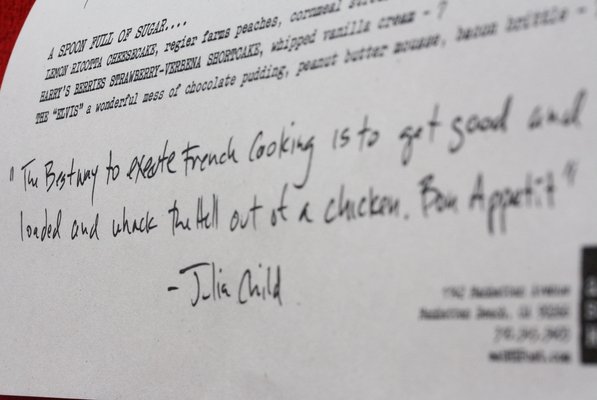 A SPOON FULL OF SUGAR....
LEMON RICOTTA CHEESECAKE, regier farms peaches, cornmeal
HARRY'S BERRIES STRAWBERRY-VERBENA SHORTCAKE, whipped vanilla cream - 7
THE "ELVIS" a wonderful mess of chocolate pudding, peanut butter mousse, bacon brittle -
"The Best way to execute French Cooking is to get good and
loaded and whack the Hell out of a chicken. Bon Appetit"
- Julia Child
Manhattan Avenue
Manhattan Beach, CA